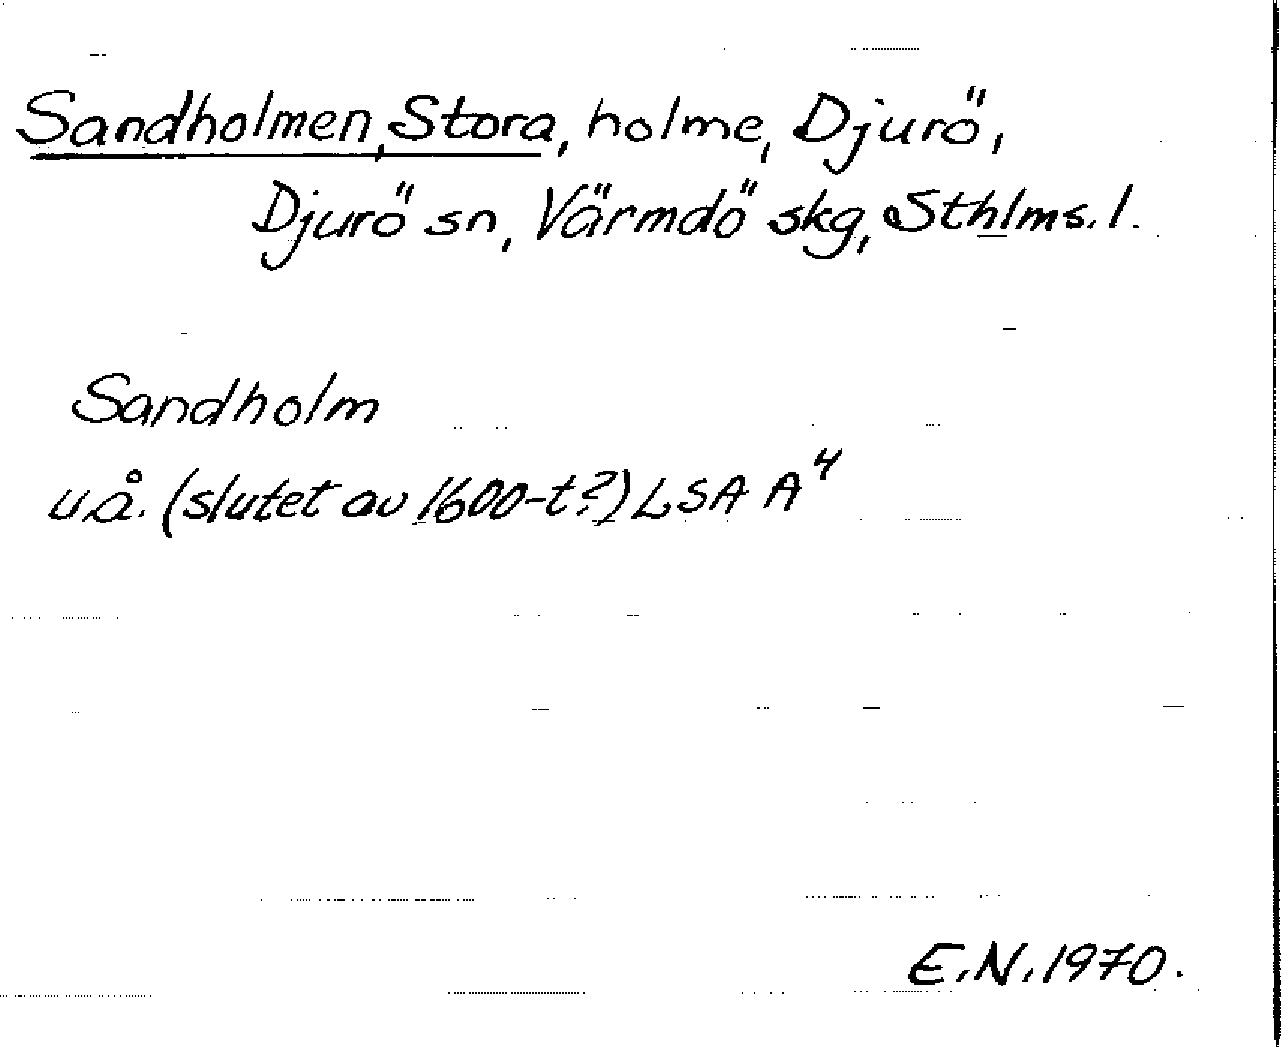 Sandholmen, Stora, holme, Djurö,
Djurö sn, Värmdö skg, Sthlms. l.
Sandholm
u.å. (slutet av 1600-t?) LSA A⁴
E.N. 1970.